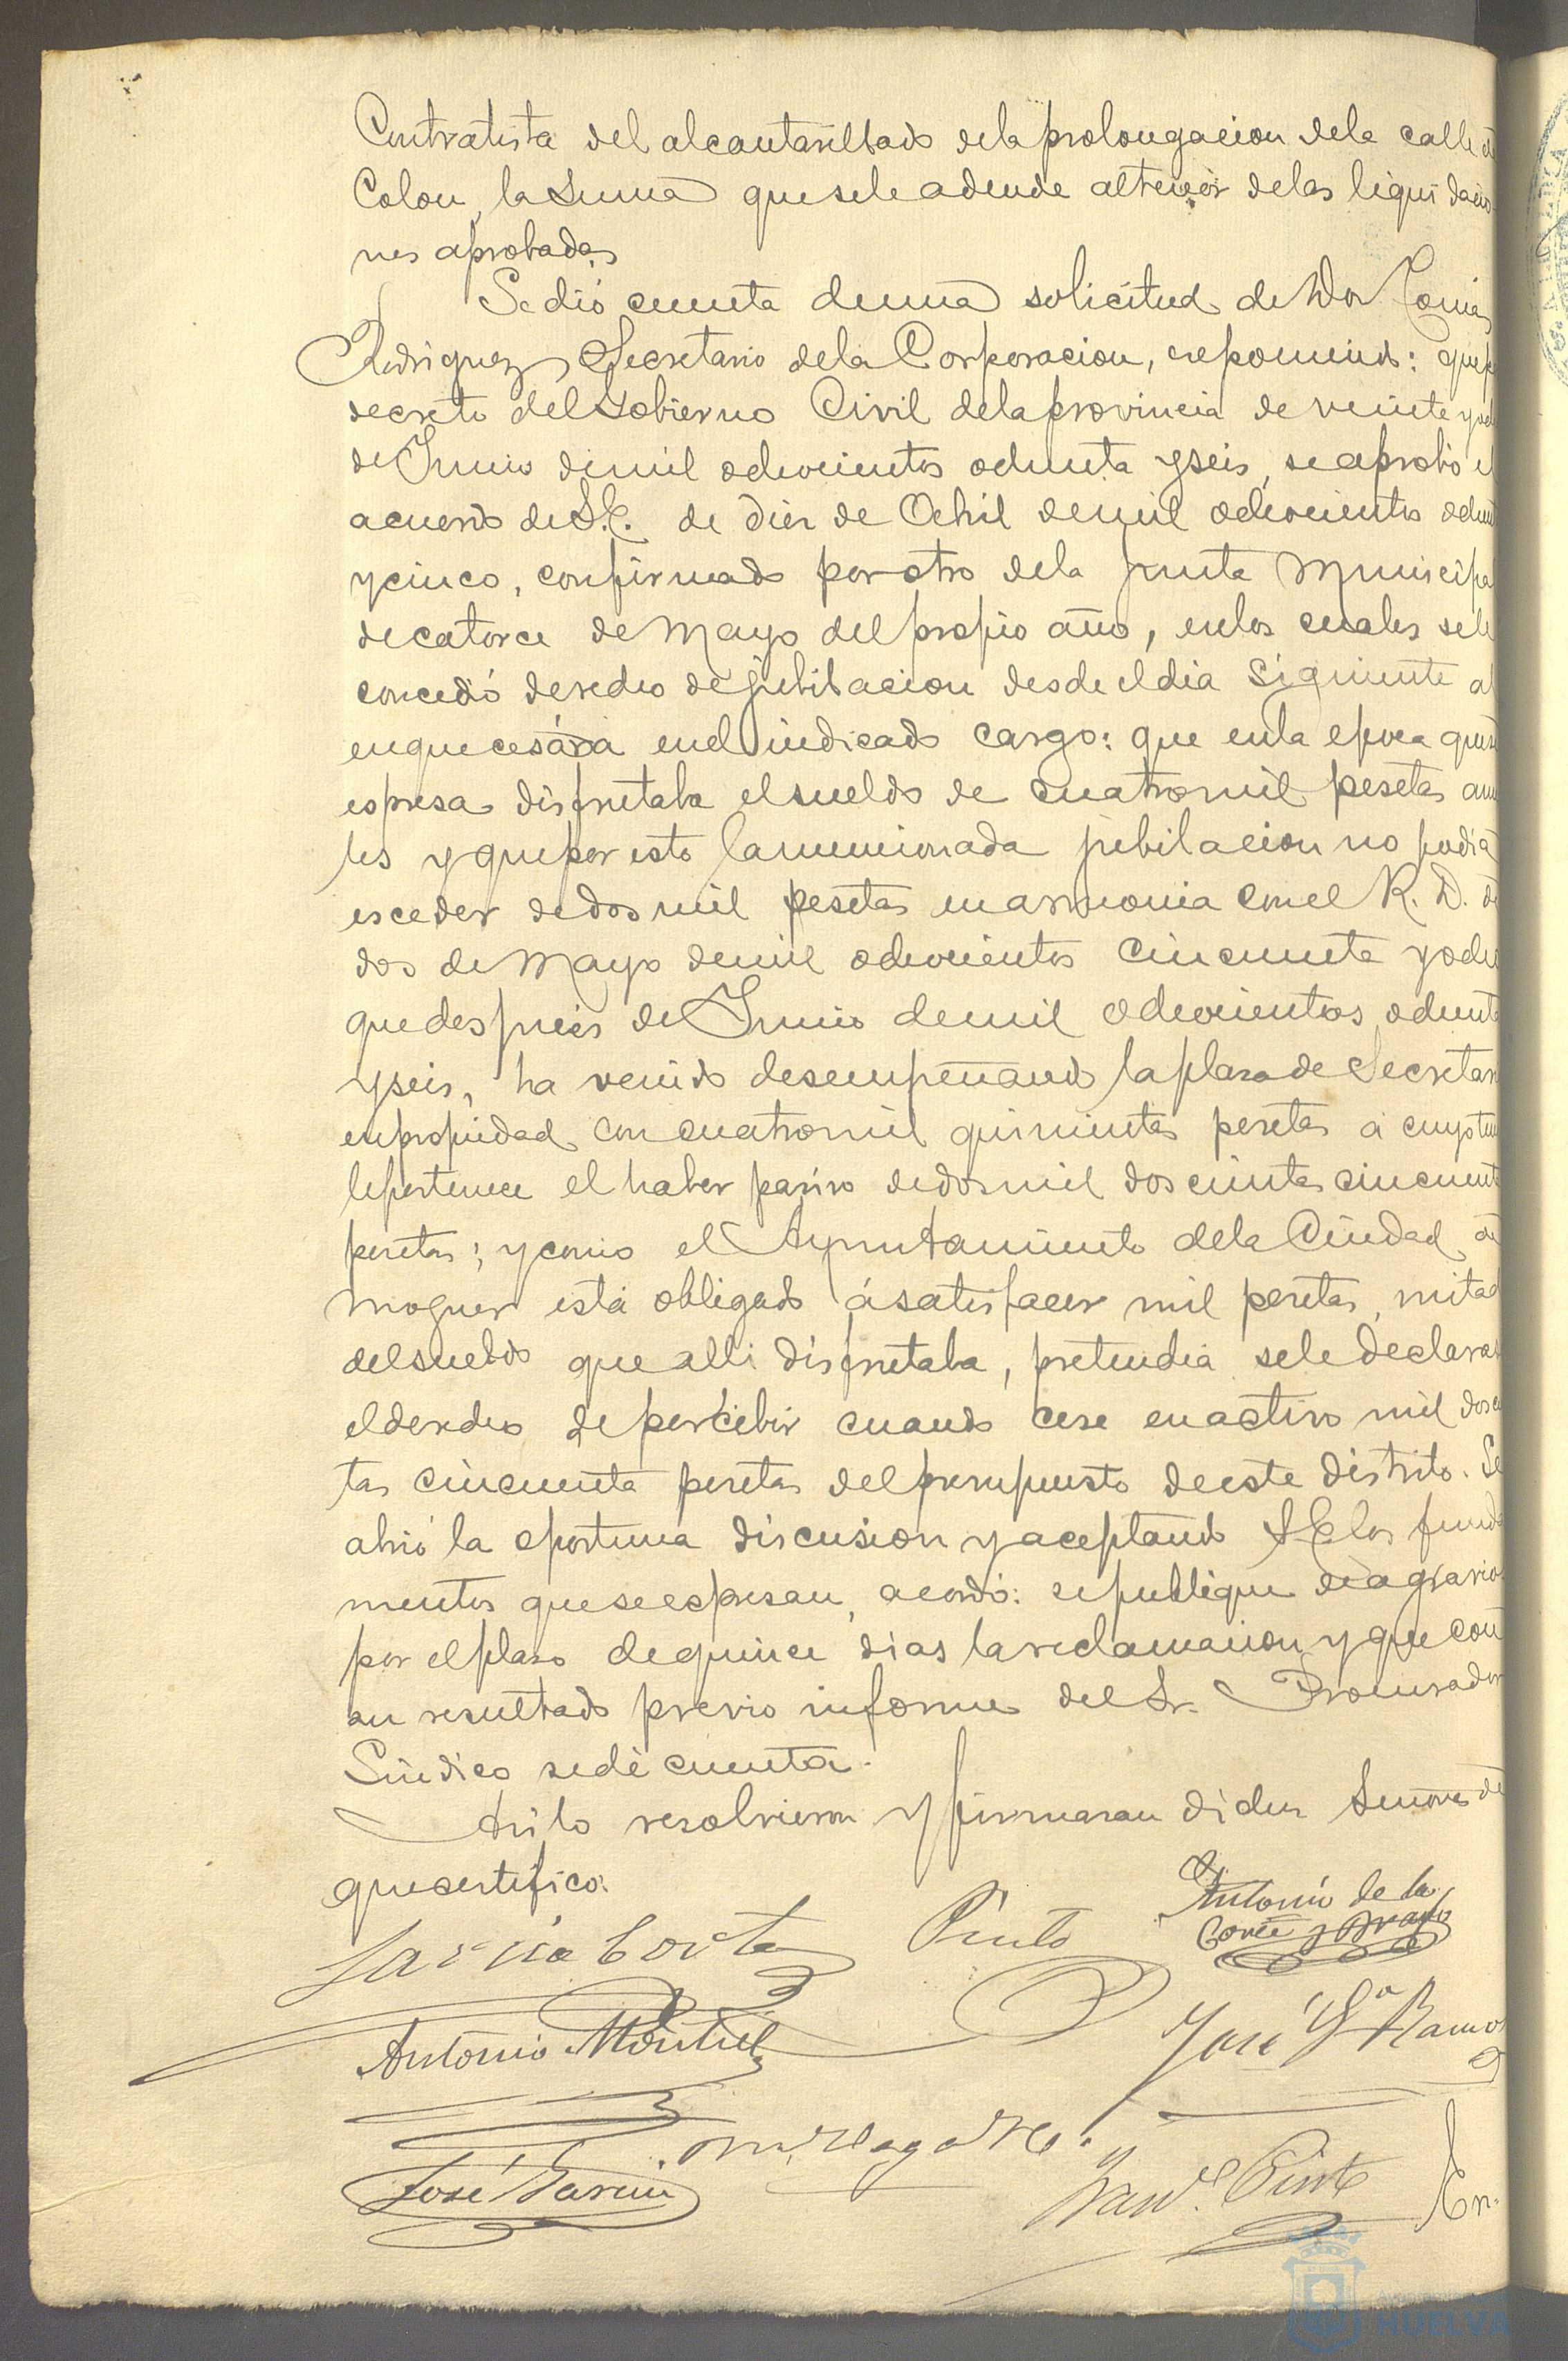 Contratista del alcantarillado dela prolongacion dela calle de
Colon, la suma que sele adeude al tenor delas liquidacio
nes aprobadas
Se dió cuenta de una solicitud de Don Tomás
Rodriguez, Secretario dela Corporacion, esponiendo: que p
decreto del Gobierno Civil dela provincia de veinte y
de Junio de mil ochocientos ochenta y seis, se aprobó el
acuerdo de S.E. de diez de Abril de mil ochocientos ochen
y cinco, confirmado por otro dela Junta Municipa
de catorce de Mayo del propio año, enlos cuales sele
concedió derecho de jubilacion desde el dia siguiente al
en que cesára en el indicado cargo: que enla epoca que se
espresa disfrutaba el sueldo de cuatro mil pesetas anua
les y que por esto la mencionada jubilacion no podia
esceder de dos mil pesetas en armonia con el R. D. de
dos de Mayo de mil ochocientos cincuenta y ocho
que despues de Junio de mil ochocientos ochenta
y seis, ha venido desempeñando la plaza de Secretar
en propiedad con cuatro mil quinientas pesetas á cuyo ten
le pertenece el haber pasivo de dos mil doscientas cincuent
pesetas; y como el Ayuntamiento dela Ciudad de
Moguer está obligado á satisfacer mil pesetas, mitad
del sueldo que alli disfrutaba, pretendia sele declaras
el derecho de percibir cuando cese en activo mil dosc
tas cincuenta pesetas del presupuesto de este distrito. Se
abrió la oportuna discusion y aceptando S.E. los funda
mentos que se espresan, acordó: se publique de agravios
por el plazo de quince dias la reclamacion y que con
su resultado previo informe del Sr. Procurador
Síndico se dé cuenta.
Asi lo resolvieron y firmaran dichos Señores de
que certifico.
Garcia Cortes Pinto Antonio de la
Corte y Bravo
Antonio Montiel José Ga Ramos
José Garcia Manl. Pinto En-
HUELVA